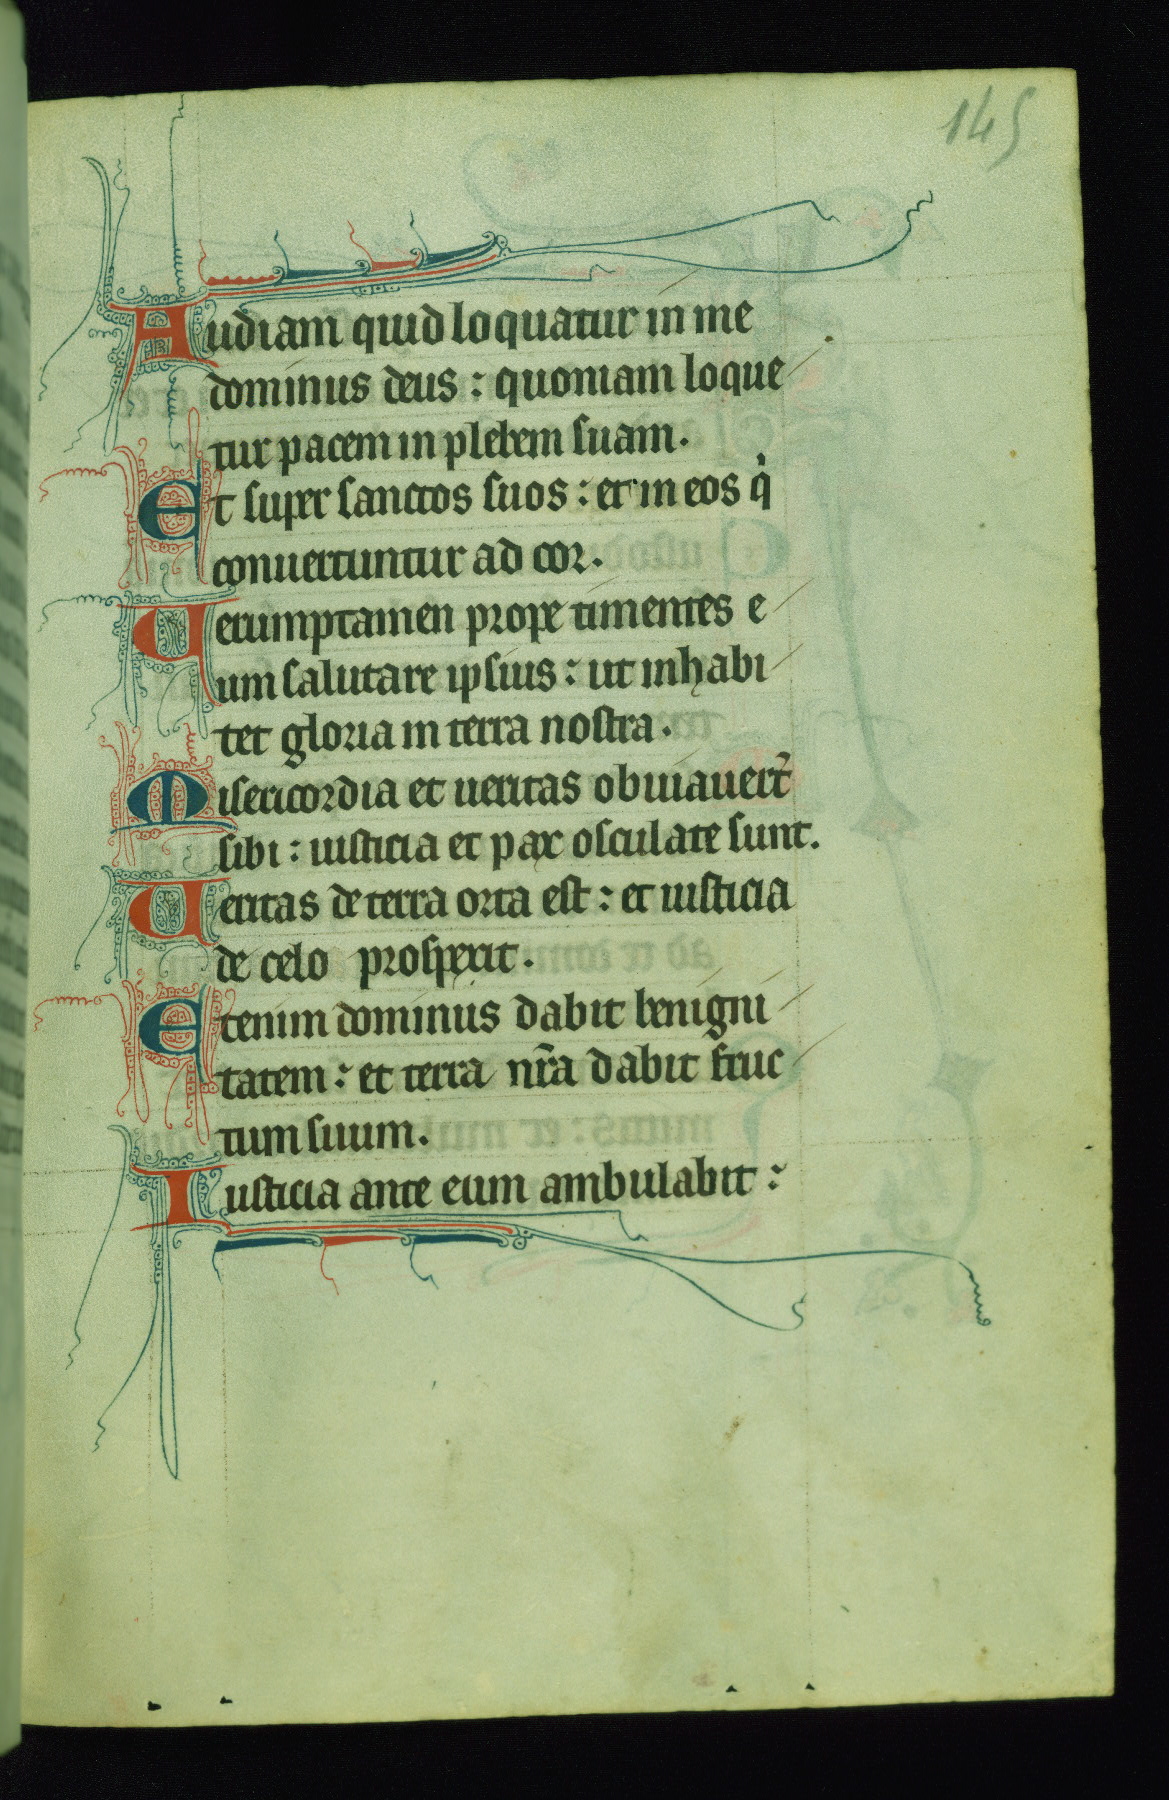 145
Audiam quid loquatur in me
dominus deus : quoniam loque
tur pacem in plebem suam.
Et super sanctos suos : et in eos qi
conuertuntur ad cor.
Uerumptamen prope timentes e
um salutare ipsius : ut inhabi
tet gloria in terra nostra.
Misericordia et ueritas obuiauert̄
sibi : iusticia et pax osculate sunt.
Ueritas de terra orta est : et iusticia
de celo prospexit.
Etenim dominus dabit benigni
tatem : et terra nr̄a dabit fruc
tum suum.
Iusticia ante eum ambulabit :